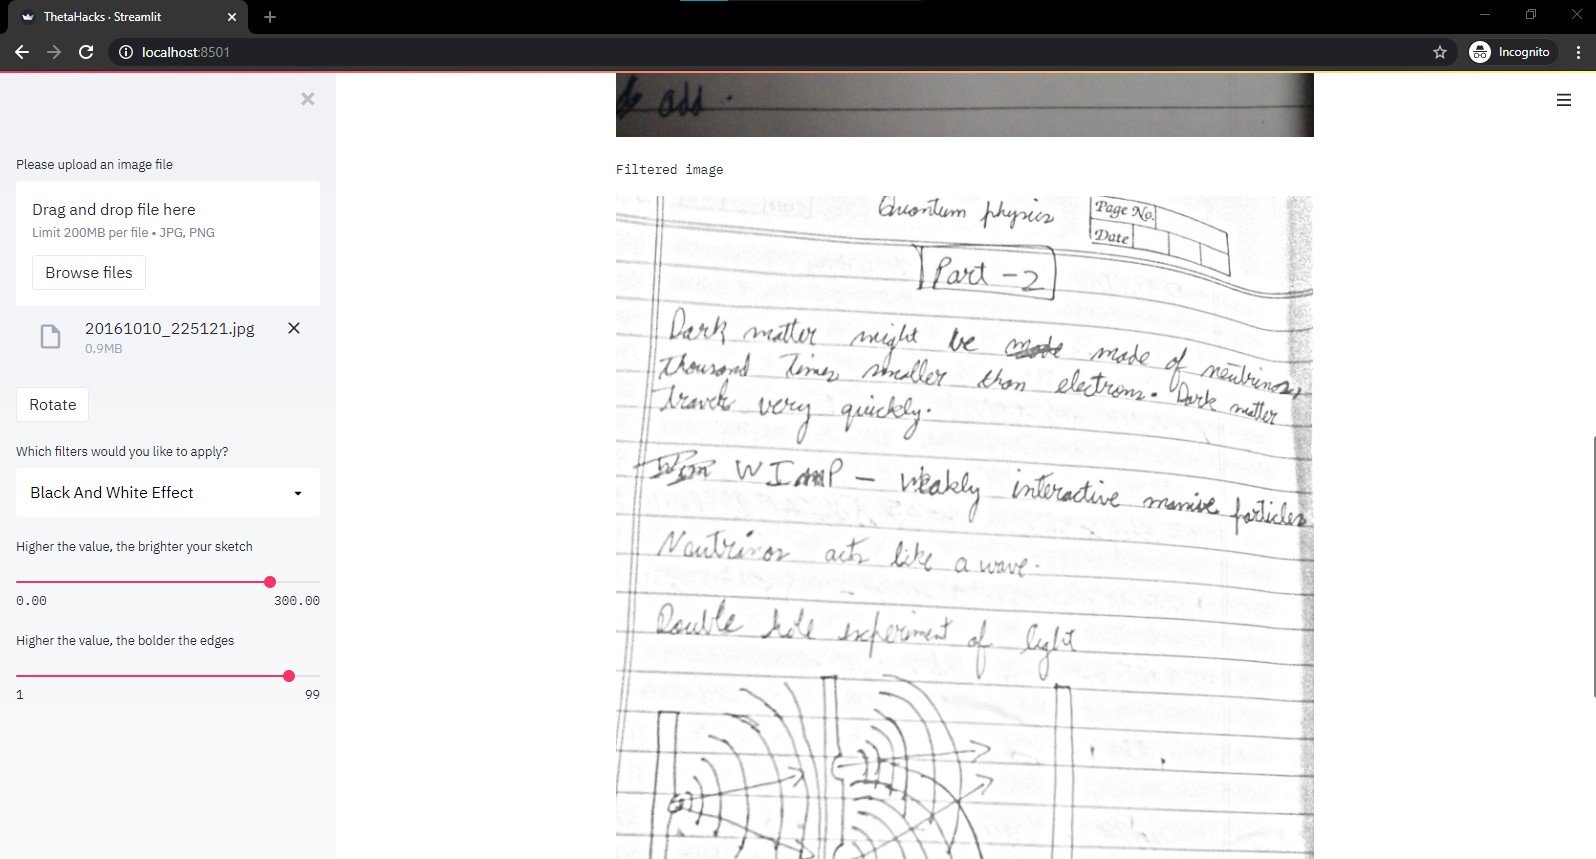 ThetaHacks · Streamlit
localhost:8501
Incognito
Please upload an image file
Drag and drop file here
Limit 200MB per file • JPG, PNG
Browse files
20161010_225121.jpg
0.9MB
Rotate
Which filters would you like to apply?
Black And White Effect
Higher the value, the brighter your sketch
0.00 300.00
Higher the value, the bolder the edges
1 99
add .
Filtered image
Quantum physics
Page No.
Date
Part - 2
Dark matter might be made of neutrinos,
thousand times smaller than electrons. Dark matter
travels very quickly.
WIMP - Weakly interactive massive particles
Neutrinos acts like a wave.
Double hole experiment of light